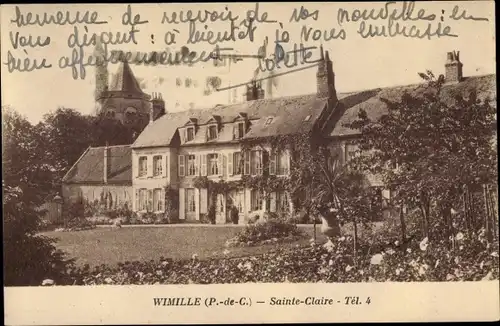 heureuse de recevoir de vos nouvelles : en
vous disant : à bientôt je vous embrasse
bien affectueusement
Colette
WIMILLE (P.-de-C.) — Sainte-Claire - Tél. 4